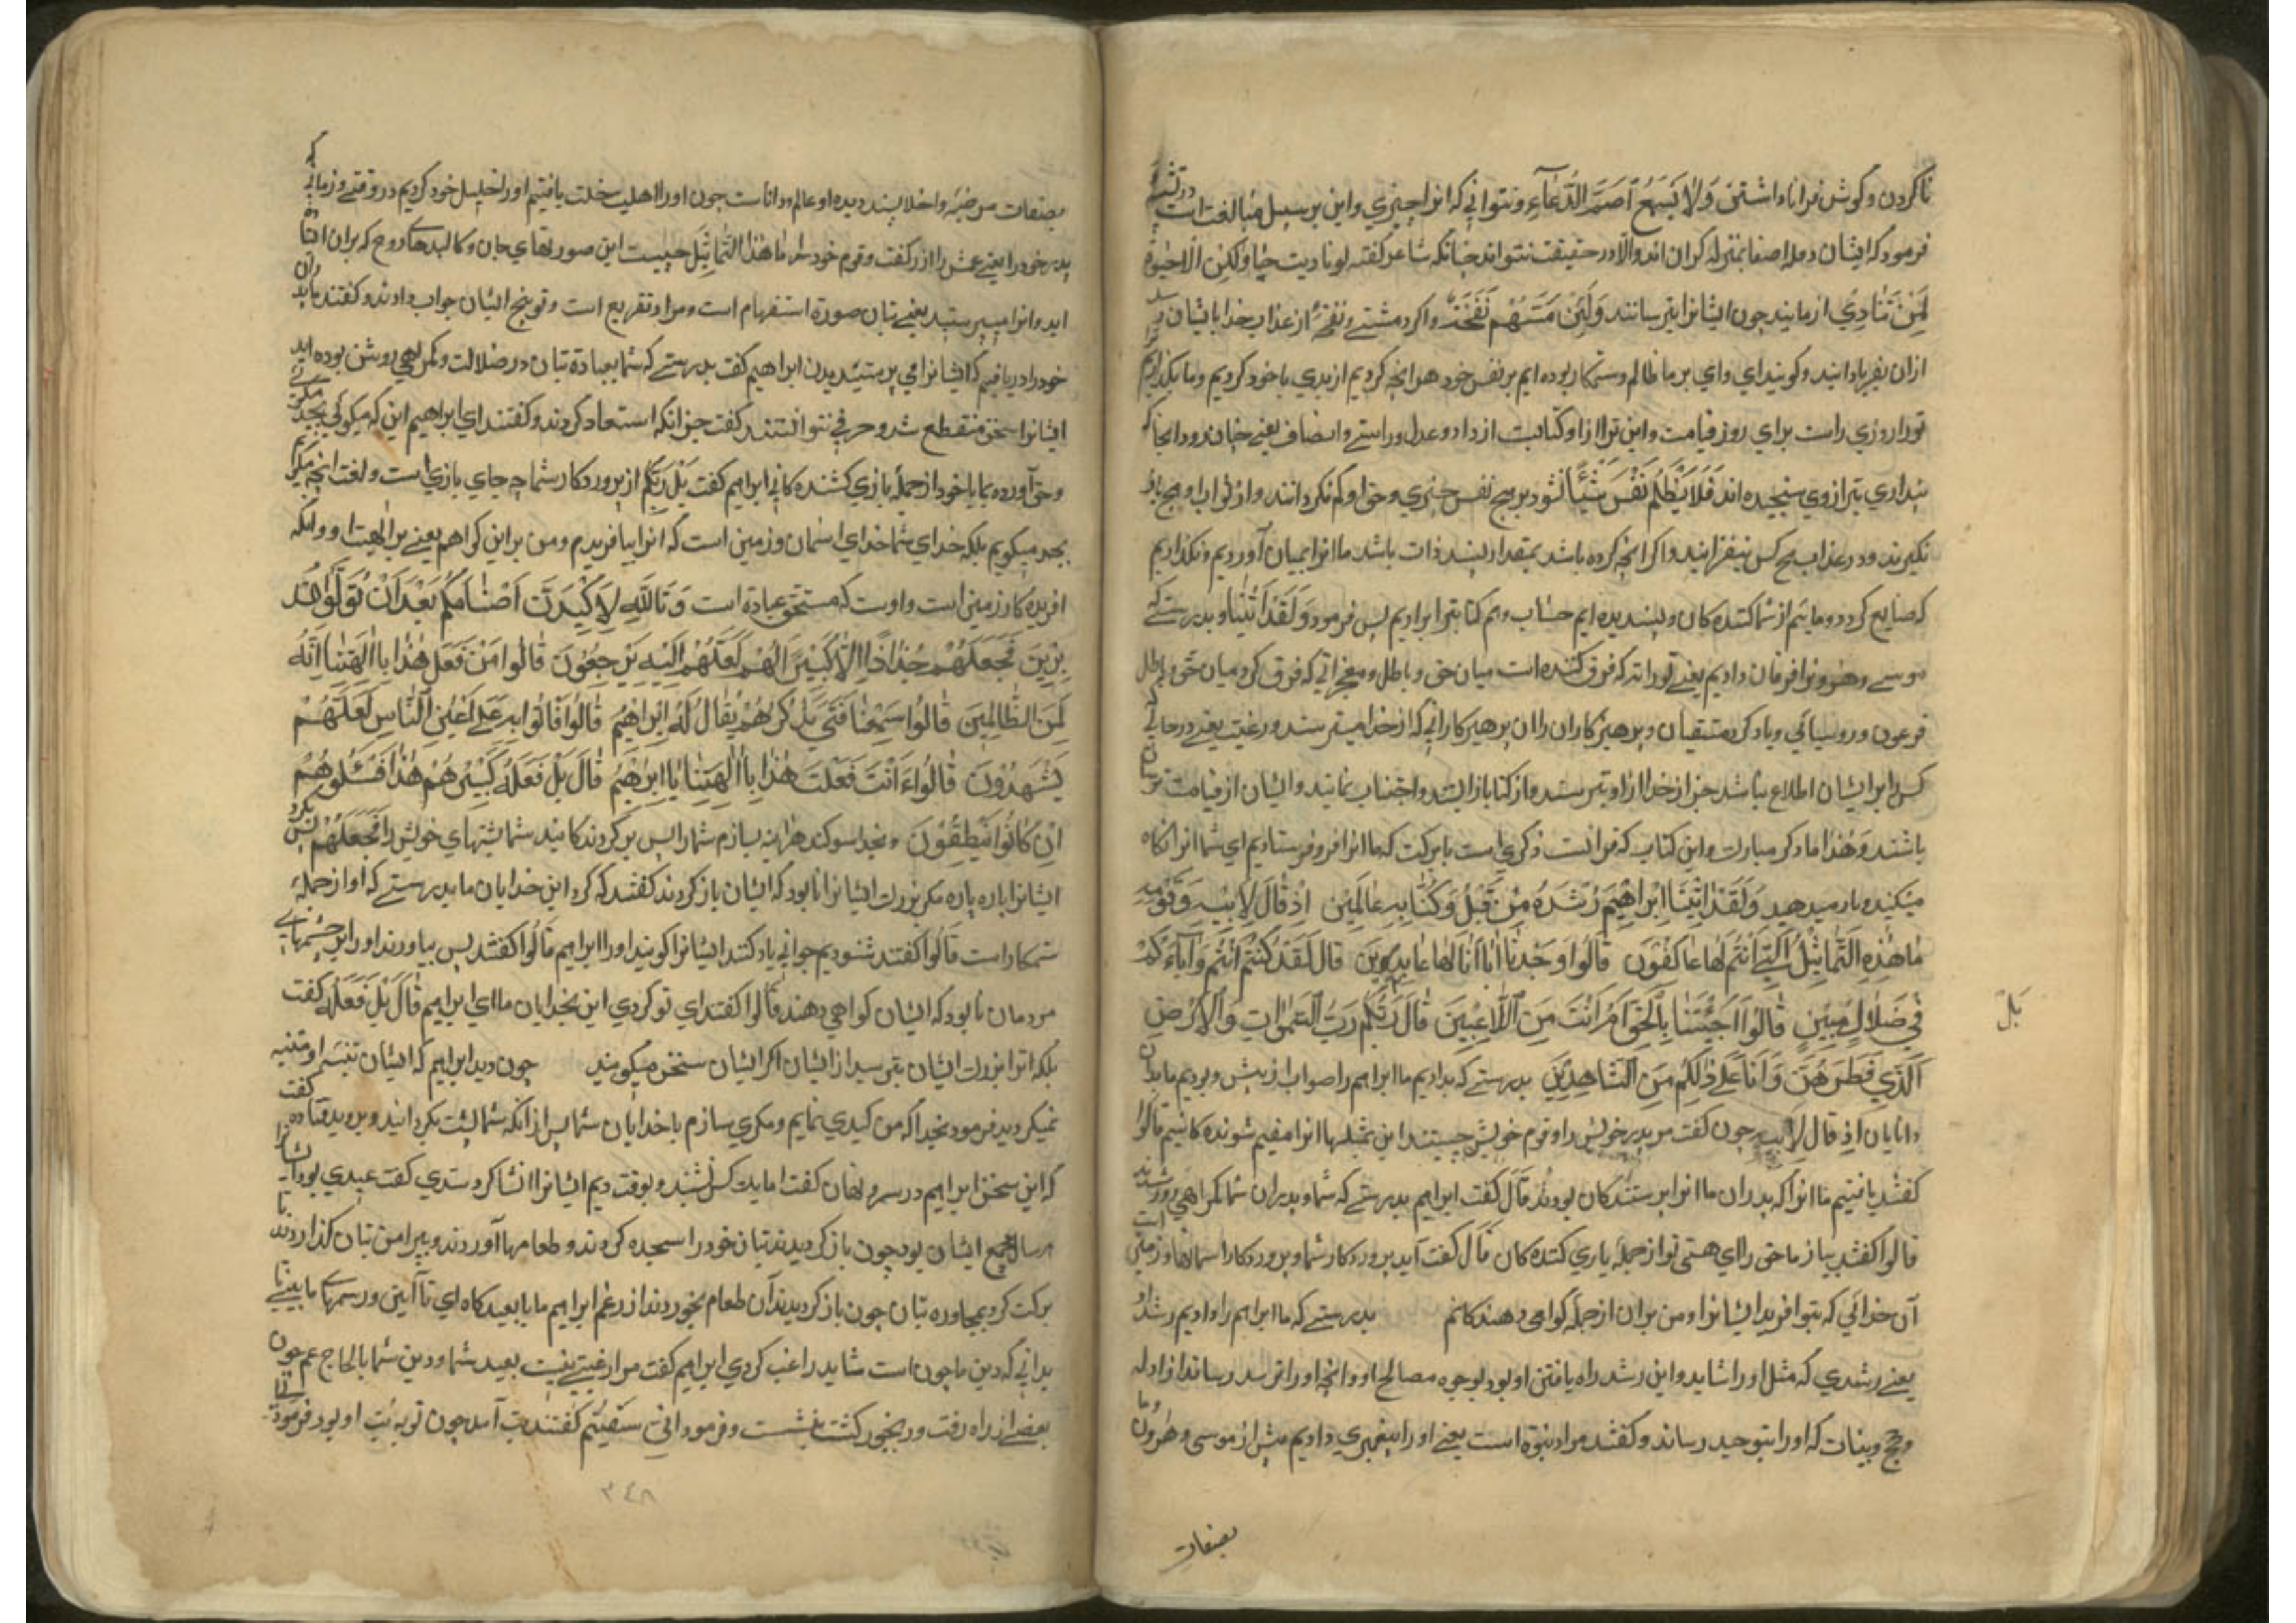 ناکردن و گوش فرا ناداشتن وَلَا يَسْمَعُ الصُّمُّ الدُّعَاءَ و نتوانی که انرا چیزی و این بر سبیل مبالغت است
فرمود که ایشان در عدم اصغا بمنزله کران اند و الا در حقیقت نتواند چنانکه شاعر گفته لو نادیت حیا ولکن لا حیوة
لمن تنادی از مانند چون ایشانرا بترسانند وَلَئِن مَسَّتْهُمْ نَفْحَةٌ و اگر دمشتی و نفحهٔ از عذاب خدا بایشان
ازان بفریاد ایند و گویند ای وای بر ما ظالم و ستمکار بوده ایم بر نفس خود هر انچه کردیم از بدی با خود کردیم و ما بگذاریم
ترازوی راست برای روز قیامت و این ترازو کنایت از داد و عدل و راستی و انصاف یعنی چنان بود انجا که
پنداری بترازوی سنجیده اند فَلَا تُظْلَمُ نَفْسٌ شَيْئًا نشود بر هیچ نفس چیزی و حق او کم نگردانند و از ثواب او هیچ باز
نگیرند و در عذاب هیچ کس نیفزایند و اگر انچه کرده باشد بمقدار سپند ذات باشد ما انرا بمیان آوردیم و نگذاریم
که ضایع گردد و مائیم از شما کننده کان و بسندیده ایم حساب وهم کتابترا برادیم پس فرمود وَلَقَدْ آتَيْنَا و بدرستی که
موسی و هرونرا فرقان دادیم یعنی توراته که فرق کننده است میان حق و باطل و معجزاتی که فرق کرد میان حق و باطل
فرعون و روسیائی و یاد کرد متقیان و پرهیزکاران را ان پرهیزکارانی که از خدا میترسند و رغیب یعنی در حالی که
کس را بر ایشان اطلاع نباشد جز از خدا از او بترسند و از گناه باز ایستند و اجتناب نمایند و ایشان از قیامت ترسان
باشند وَهَذَا ما ذکر مبارک و این کتاب که قرانست ذکری است با برکت که ما انرا فرو فرستادیم ای شما انرا انکاه
میکنید و باز میدهید وَلَقَدْ آتَيْنَا إِبْرَاهِيمَ رُشْدَهُ مِنْ قَبْلُ وَكُنَّا بِهِ عَالِمِينَ إِذْ قَالَ لِأَبِيهِ وَقَوْمِهِ
مَا هَذِهِ التَّمَاثِيلُ الَّتِي أَنْتُمْ لَهَا عَاكِفُونَ قَالُوا وَجَدْنَا آبَاءَنَا لَهَا عَابِدِينَ قَالَ لَقَدْ كُنْتُمْ أَنْتُمْ وَآبَاءَكُمْ
فِي ضَلَالٍ مُبِينٍ قَالُوا أَجِئْتَنَا بِالْحَقِّ أَمْ أَنْتَ مِنَ اللَّاعِبِينَ قَالَ رَبُّكُمْ رَبُّ السَّمَوَاتِ وَالْأَرْضِ
بَلْ
الَّذِي فَطَرَهُنَّ وَأَنَا عَلَى ذَلِكُمْ مِنَ الشَّاهِدِينَ بدرستی که بدادیم ما ابراهیم را صواب از پیش و بودیم ما بدان
دانایان اذ قال لابیه چون گفت مر پدر خویش را و قوم خویش چیستند این تمثیلها انرا مقیم شونده کانیم قالوا
گفتند یافتیم ما انرا که پدران ما انرا پرستندکان بودند قال گفت ابراهیم بدرستی که شما و پدران شما کمراهی بودند
قالوا گفتند بیاز ما حق را ای هستی تو از جمله یاری کننده کان قال گفت آید پروردکار شما و پروردکار اسمانها و زمین است
آن خدائی که بتوا فرید ایشانرا و من بران از جمله گواهی دهندکانم بدرستی که ما ابراهیم را دادیم رشد او
یعنی رشدی که مثل او را شاید و این رشد راه یافتن او بود بوجوه مصالح او و انچه او را برسد رساند از ادله
و حج و بینات که او را بتوحید رساند و گفتند مراد نبوة است یعنی او را پیغمبری دادیم پیش از موسی و هرون و ما
بصفات
بصفات مرضیه و اخلا پسندیده او عالم و دانا ست چون او را اهلیت خلت یافتیم او را خلیل خود کردیم در وقتی و زمانی که
پدر خود را یعنی عمش را ازر گفت و قوم خود را ما هَذِهِ التَّمَاثِيلُ چیست این صورتهای بی جان و کالبدهای بی روح که بران اقبال
اید و انرا میپرستید یعنی بتان صورة استفهام است و مراد تقریع است و توبیخ ایشان جواب دادند و گفتند ما پدران
خود را دریافتیم که ایشانرا می پرستیدیدن ابراهیم گفت بدرستی که شما بعبادة بتان در ضلالت و کمراهی روشن بوده اید
ایشانرا سخن منقطع شد و حرفی نتوانستند گفت جز انکه استبعاد کردند و گفتند ای ابراهیم این که میکوئی بجد میکوئی
و حق آورده بما یا خود از جمله بازی کننده کانی ابراهیم گفت بَلْ رَبُّكُمْ از پروردکار شما چه جای بازی است و لعبت انچه میکویم
بجد میکویم بلکه خدای شما خدای اسمان و زمین است که انرا بیافریدم و من بر این کواهم یعنی بر الهیت او و انکه
افریده کار زمین است و اوست که مستحق عبادة است وَتَاللَّهِ لَأَكِيدَنَّ أَصْنَامَكُمْ بَعْدَ أَنْ تُوَلُّوا مُدْ
بِرِينَ فَجَعَلَهُمْ جُذَاذًا إِلَّا كَبِيرًا لَهُمْ لَعَلَّهُمْ إِلَيْهِ يَرْجِعُونَ قَالُوا مَنْ فَعَلَ هَذَا بِآلِهَتِنَا إِنَّهُ
لَمِنَ الظَّالِمِينَ قَالُوا سَمِعْنَا فَتًى يَذْكُرُهُمْ يُقَالُ لَهُ إِبْرَاهِيمُ قَالُوا فَأْتُوا بِهِ عَلَى أَعْيُنِ النَّاسِ لَعَلَّهُمْ
يَشْهَدُونَ قَالُوا ءَأَنْتَ فَعَلْتَ هَذَا بِآلِهَتِنَا يَا إِبْرَاهِيمُ قَالَ بَلْ فَعَلَهُ كَبِيرُهُمْ هَذَا فَسْئَلُوهُمْ
إِنْ كَانُوا يَنْطِقُونَ و بخدا سوکند هراینه بسازم شما را پس بر گردند کانند شما پشتهای خویش را فَجَعَلَهُمْ پس بکرد
ایشانرا پاره پاره مکر بزرک ایشانرا تا بود که ایشان باز کردند گفتند که کرد این خدایان ما بدرستی که او از جملهٔ
ستمکار است قالوا گفتند شنودیم جوانی یاد کند ایشانرا گویند او را ابراهیم قالوا گفتند پس بیاورند او را بر چشمهای
مردمان تا بود که ایشان گواهی دهند قالوا گفتند ای تو کردی این بخدایان ما ای ابراهیم قَالَ بَلْ فَعَلَهُ گفت
بلکه انرا بزرک ایشان بپرسید از ایشان اگر ایشان سخن میگویند چون دید ابراهیم که ایشان تنبیه او متنبه
نمیکردید فرمود بخدا که من کیدی نمایم و مکری سازم با خدایان شما پس از انکه شما پشت بکردانید و بروید قتاده گفت
که این سخن ابراهیم در سر و نهان گفت اما یک کس شنید و بوقت دیم ایشانرا انشا کرد سدی گفت عیدی بود ایشانرا
هر سال جمع ایشان بود چون باز کردیدند بتان خود را سجده کردند و طعامها آوردند و پیرامن بتان گذاردند تا
برکت کرد بمجاوره بتان چون باز کردیدند آن طعام بخوردند از رغم ابراهیم ما با بعید کاه ای تا آیین و رسمهای ما ببینی تا
بدانی که دین ما چون است شاید راغب کردی ابراهیم گفت مرا رغبتی نیست بعید شما و دین شما بالحاج عم چون
بعضی از راه رفت و رنجور گشت بنشست و فرمود انی سقیم گفتند تب آمد چون نوبه تب او بود فرمود
۳۴۸